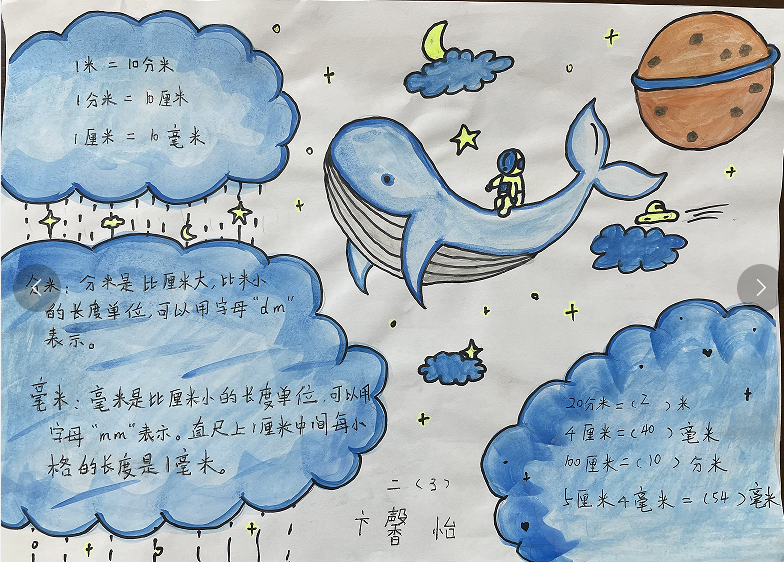 1米 = 10分米
1分米 = 10厘米
1厘米 = 10毫米
分米：分米是比厘米大，比米小
的长度单位，可以用字母“dm”
表示。
毫米：毫米是比厘米小的长度单位，可以用
字母“mm”表示。直尺上1厘米中间每小
格的长度是1毫米。
20分米=（2）米
4厘米=（40）毫米
100厘米=（10）分米
5厘米4毫米=（54）毫米
二（3）
卞馨怡